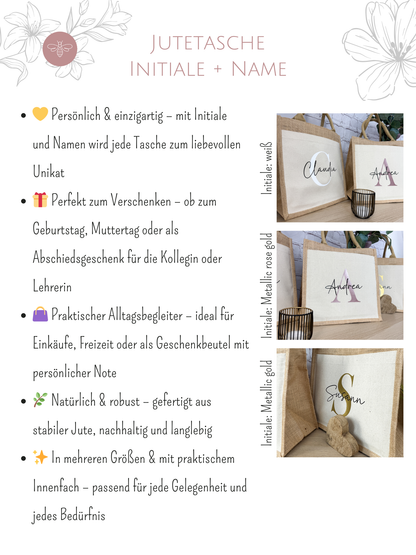 Jutetasche
Initiale + Name
• 💛 Persönlich & einzigartig – mit Initiale
und Namen wird jede Tasche zum liebevollen
Unikat
• 🎁 Perfekt zum Verschenken – ob zum
Geburtstag, Muttertag oder als
Abschiedsgeschenk für die Kollegin oder
Lehrerin
• 👜 Praktischer Alltagsbegleiter – ideal für
Einkäufe, Freizeit oder als Geschenkbeutel mit
persönlicher Note
• 🌿 Natürlich & robust – gefertigt aus
stabiler Jute, nachhaltig und langlebig
• ✨ In mehreren Größen & mit praktischem
Innenfach – passend für jede Gelegenheit und
jedes Bedürfnis
Initiale: weiß
Claudia
A
Andrea
Initiale: Metallic rose gold
A
Andrea
Initiale: Metallic gold
S
Susann